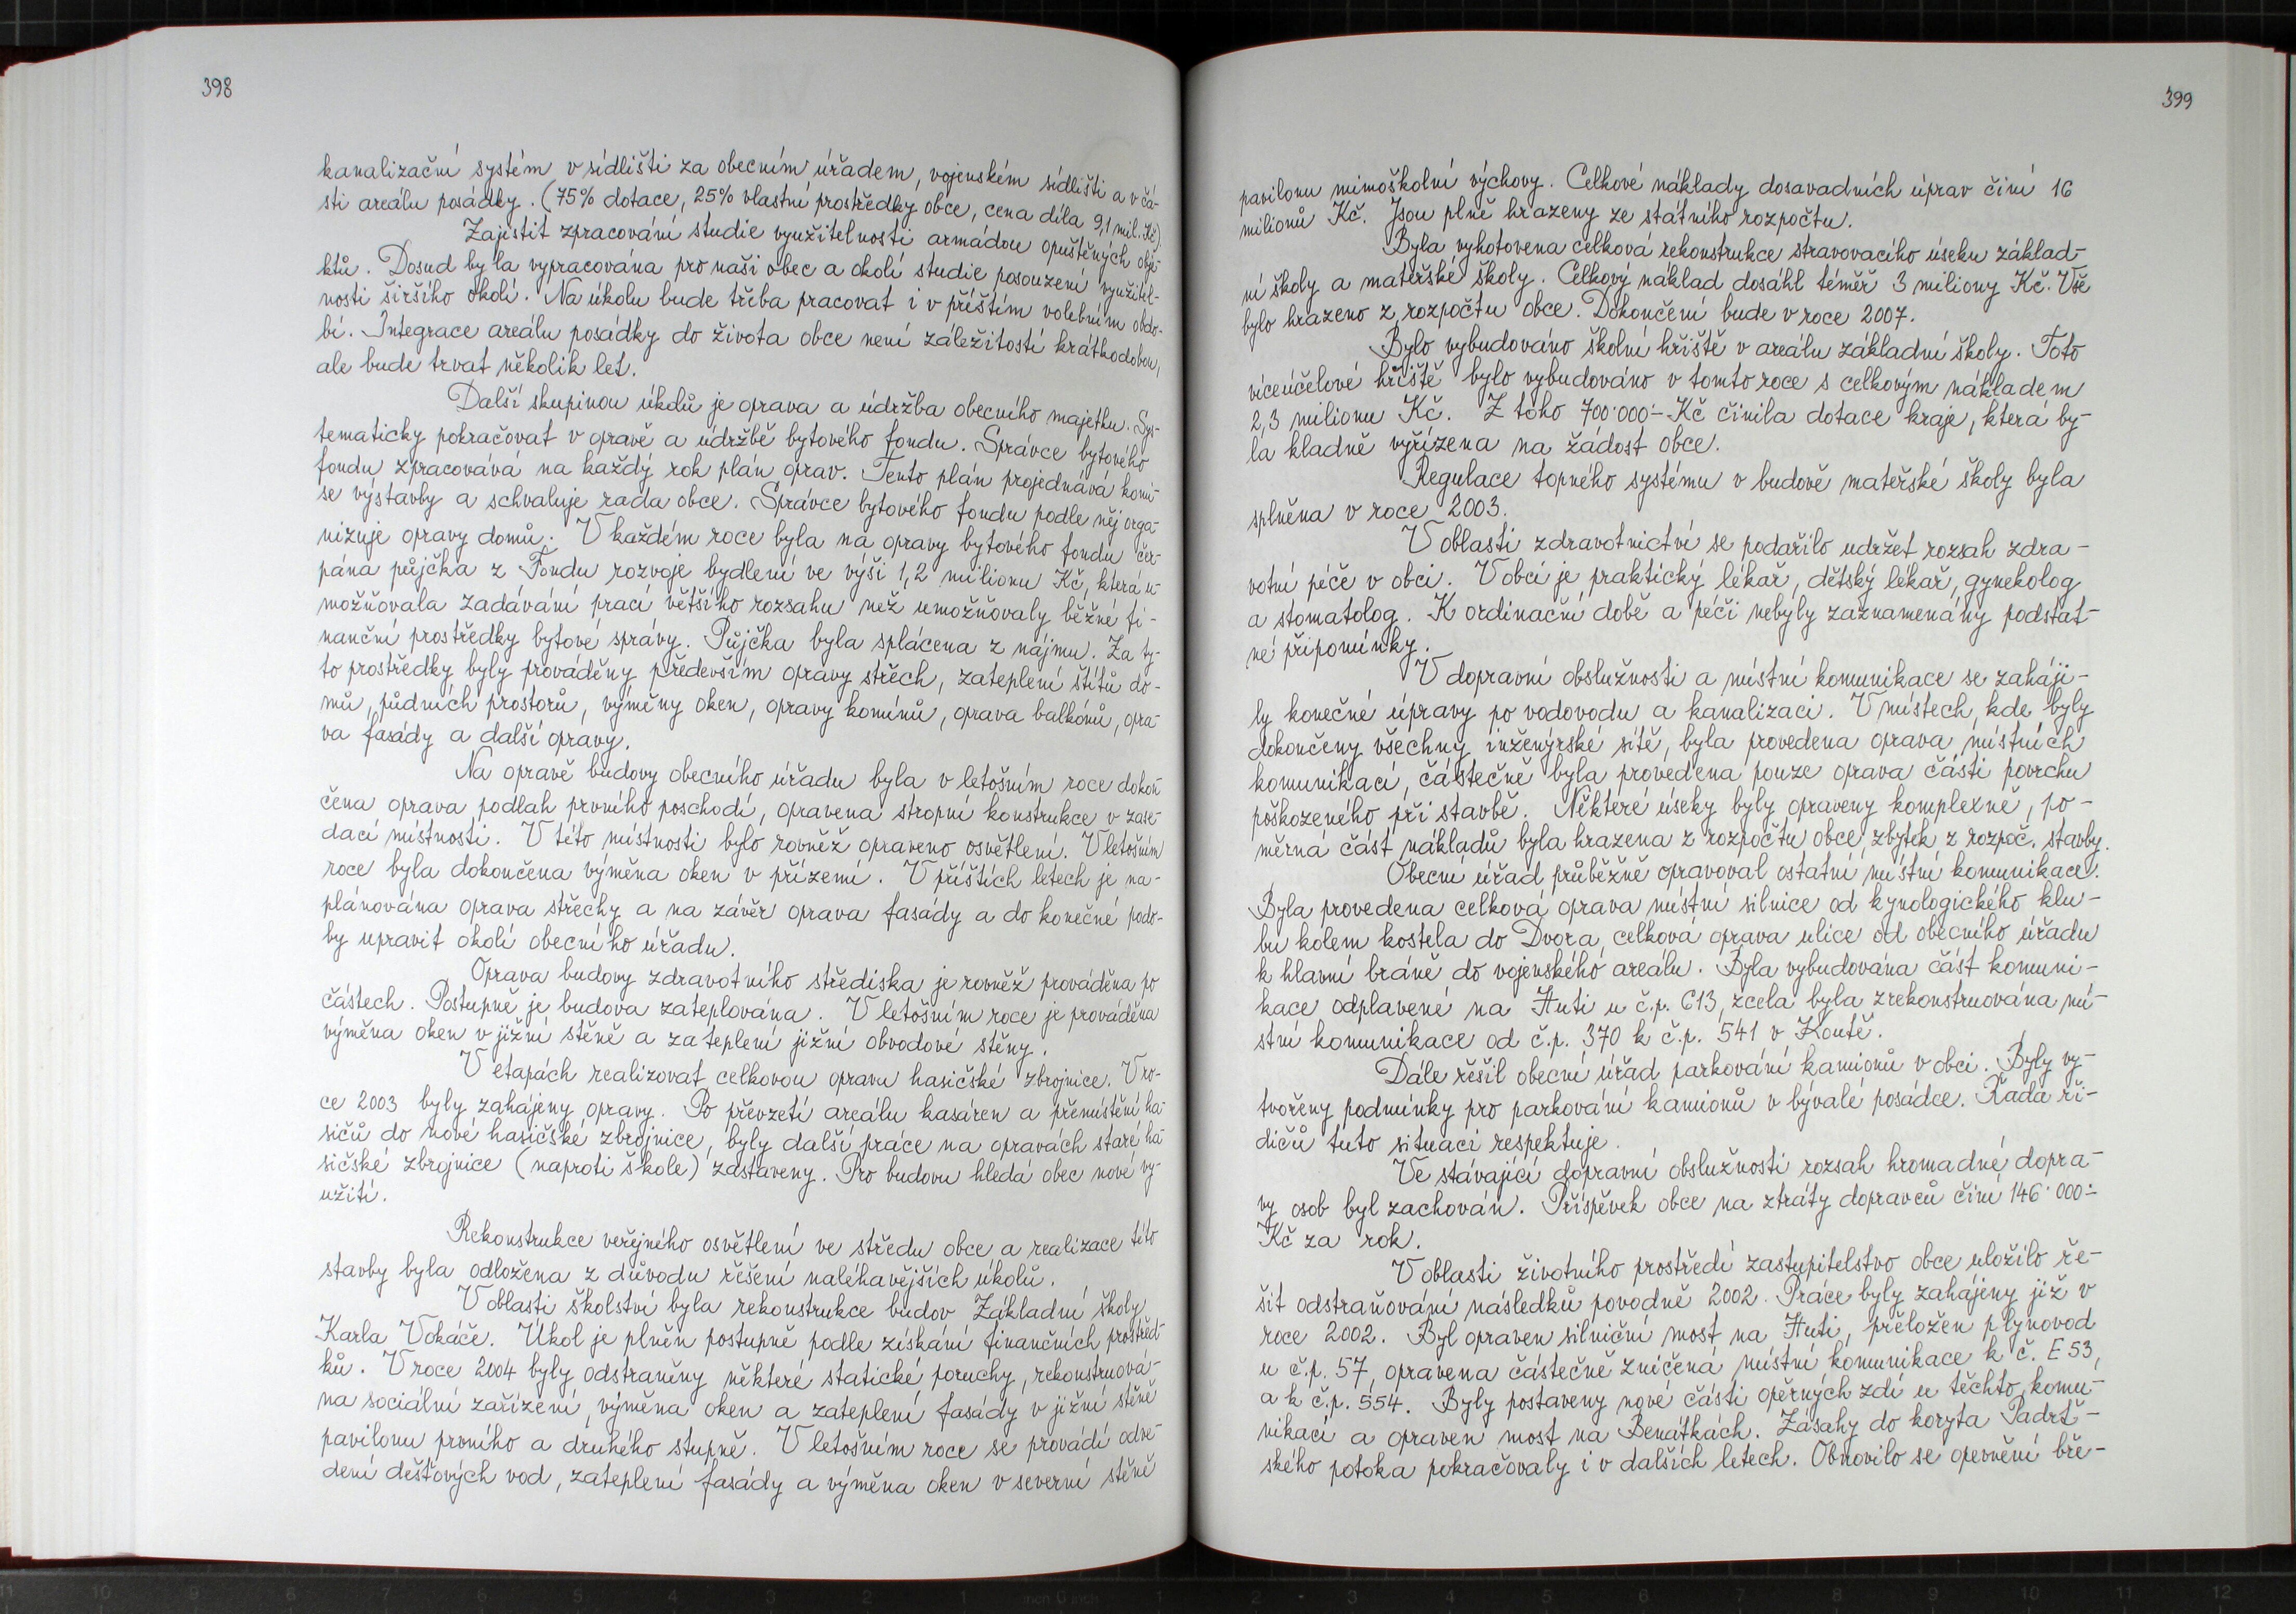 398
kanalizační systém v sídlišti za obecním úřadem, vojenském sídlišti a v čá-
sti areálu posádky. (75% dotace, 25% vlastní prostředky obce, cena díla 9,1 mil. Kč)
Zajistit zpracování studie využitelnosti armádou opuštěných obje-
ktů. Dosud byla vypracována pro naši obec a okolí studie posouzení využitel-
nosti širšího okolí. Na úkolu bude třeba pracovat i v příštím volebním obdo-
bí. Integrace areálu posádky do života obce není záležitostí krátkodobou,
ale bude trvat několik let.
Další skupinou úkolů je oprava a údržba obecního majetku. Sys-
tematicky pokračovat v opravě a údržbě bytového fondu. Správce bytového
fondu zpracovává na každý rok plán oprav. Tento plán projednává komi-
se výstavby a schvaluje rada obce. Správce bytového fondu podle něj orga-
nizuje opravy domů. V každém roce byla na opravy bytového fondu čer-
pána půjčka z Fondu rozvoje bydlení ve výši 1,2 milionu Kč, která u-
možňovala zadávání prací většího rozsahu než umožňovaly běžné fi-
nanční prostředky bytové správy. Půjčka byla splácena z nájmu. Za ty-
to prostředky byly prováděny především opravy střech, zateplení štítů do-
mů, půdních prostorů, výměny oken, opravy komínů, oprava balkónů, opra-
va fasády a další opravy.
Na opravě budovy obecního úřadu byla v letošním roce dokon-
čena oprava podlah prvního poschodí, opravena stropní konstrukce v zase-
dací místnosti. V této místnosti bylo rovněž opraveno osvětlení. V letošním
roce byla dokončena výměna oken v přízemí. V příštích letech je na-
plánována oprava střechy a na závěr oprava fasády a do konečné podo-
by upravit okolí obecního úřadu.
Oprava budovy zdravotního střediska je rovněž prováděna po
částech. Postupně je budova zateplována. V letošním roce je prováděna
výměna oken v jižní stěně a zateplení jižní obvodové stěny.
V etapách realizovat celkovou opravu hasičské zbrojnice. V ro-
ce 2003 byly zahájeny opravy. Po převzetí areálu kasáren a přemístění ha-
sičů do nové hasičské zbrojnice, byly další práce na opravách staré ha-
sičské zbrojnice (naproti škole) zastaveny. Pro budovu hledá obec nové vy-
užití.
Rekonstrukce veřejného osvětlení ve středu obce a realizace této
stavby byla odložena z důvodu řešení naléhavějších úkolů.
V oblasti školství byla rekonstrukce budov Základní školy
Karla Vokáče. Úkol je plněn postupně podle získání finančních prostřed-
ků. V roce 2004 byly odstraněny některé statické poruchy, rekonstruová-
na sociální zařízení, výměna oken a zateplení fasády v jižní stěně
pavilonu prvního a druhého stupně. V letošním roce se provádí odve-
dení dešťových vod, zateplení fasády a výměna oken v severní stěně
399
pavilonu mimoškolní výchovy. Celkové náklady dosavadních úprav činí 16
milionů Kč. Jsou plně hrazeny ze státního rozpočtu.
Byla vyhotovena celková rekonstrukce stravovacího úseku základ-
ní školy a mateřské školy. Celkový náklad dosáhl téměř 3 miliony Kč. Vše
bylo hrazeno z rozpočtu obce. Dokončení bude v roce 2007.
Bylo vybudováno školní hřiště v areálu základní školy. Toto
víceúčelové hřiště bylo vybudováno v tomto roce s celkovým nákladem
2,3 milionu Kč. Z toho 700·000·- Kč činila dotace kraje, která by-
la kladně vyřízena na žádost obce.
Regulace topného systému v budově mateřské školy byla
splněna v roce 2003.
V oblasti zdravotnictví se podařilo udržet rozsah zdra-
votní péče v obci. V obci je praktický lékař, dětský lékař, gynekolog
a stomatolog. K ordinační době a péči nebyly zaznamenány podstat-
né připomínky.
V dopravní obslužnosti a místní komunikace se zaháji-
ly konečné úpravy po vodovodu a kanalizaci. V místech, kde byly
dokončeny všechny inženýrské sítě, byla provedena oprava místních
komunikací, částečně byla provedena pouze oprava části povrchu
poškozeného při stavbě. Některé úseky byly opraveny komplexně, po-
měrná část nákladů byla hrazena z rozpočtu obce, zbytek z rozpoč. stavby.
Obecní úřad průběžně opravoval ostatní místní komunikace.
Byla provedena celková oprava místní silnice od kynologického klu-
bu kolem kostela do Dvora, celková oprava ulice od obecního úřadu
k hlavní bráně do vojenského areálu. Byla vybudována část komuni-
kace odplavené na Huti u č.p. 613, zcela byla zrekonstruována mí-
stní komunikace od č.p. 370 k č.p. 541 v Koutě.
Dále řešil obecní úřad parkování kamionů v obci. Byly vy-
tvořeny podmínky pro parkování kamionů v bývalé posádce. Řada ři-
dičů tuto situaci respektuje.
Ve stávající dopravní obslužnosti rozsah hromadné dopra-
vy osob byl zachován. Příspěvek obce na ztráty dopravců činí 146·000·-
Kč za rok.
V oblasti životního prostředí zastupitelstvo obce uložilo ře-
šit odstraňování následků povodně 2002. Práce byly zahájeny již v
roce 2002. Byl opraven silniční most na Huti, přeložen plynovod
u č.p. 57, opravena částečně zničená místní komunikace k č. E 53,
a k č.p. 554. Byly postaveny nové části opěrných zdí u těchto komu-
nikací a opraven most na Benátkách. Zásahy do koryta Padrť-
ského potoka pokračovaly i v dalších letech. Obnovilo se opevnění bře-